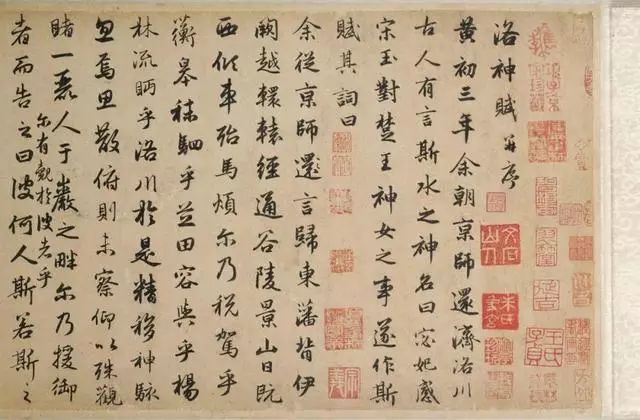 洛神賦并序
黃初三年余朝京師還濟洛川
古人有言斯水之神名曰宓妃感
宋玉對楚王神女之事遂作斯
賦其詞曰
余從京師還言歸東藩背伊
闕越轘轅經通谷陵景山日既
西傾車殆馬煩尔乃税駕乎
蘅皋秣駟乎芝田容與乎楊
林流眄乎洛川於是精移神駭
忽焉思散俯則未察仰以殊觀
睹一麗人于巖之畔尔乃援御
尔有覿於彼者乎
者而告之曰彼何人斯若斯之